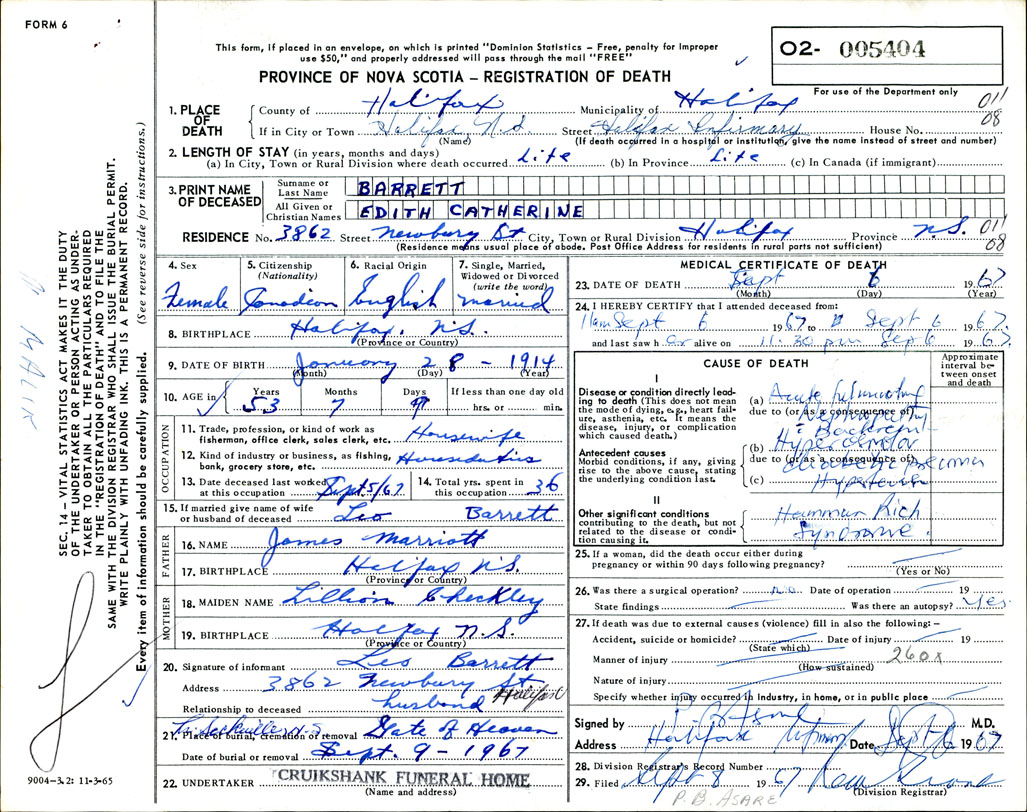 FORM 6
This form, if placed in an envelope, on which is printed "Dominion Statistics – Free, penalty for improper
use $50," and properly addressed will pass through the mail "FREE"
PROVINCE OF NOVA SCOTIA – REGISTRATION OF DEATH
O2- 005404
For use of the Department only
011
08
1. PLACE OF DEATH
County of Halifax Municipality of Halifax
If in City or Town Halifax, N.S Street Halifax Infirmary House No.
(Name) (If death occurred in a hospital or institution, give the name instead of street and number)
2. LENGTH OF STAY (in years, months and days)
(a) In City, Town or Rural Division where death occurred Life (b) In Province Life (c) In Canada (if immigrant)
3. PRINT NAME OF DECEASED
Surname or Last Name BARRETT
All Given or Christian Names EDITH CATHERINE
RESIDENCE No. 3862 Street Newbury St City, Town or Rural Division Halifax Province N.S.
(Residence means usual place of abode. Post Office Address for residents in rural parts not sufficient)
011
08
4. Sex
Female
5. Citizenship (Nationality)
Canadian
6. Racial Origin
English
7. Single, Married, Widowed or Divorced (write the word)
married
8. BIRTHPLACE Halifax, N.S.
(Province or Country)
9. DATE OF BIRTH January 28 - 1914
(Month) (Day) (Year)
10. AGE in
Years 53
Months 7
Days 9
If less than one day old
hrs. or min.
OCCUPATION
11. Trade, profession or kind of work as fisherman, office clerk, sales clerk, etc. Housewife
12. Kind of industry or business, as fishing, bank, grocery store, etc. Housduties
13. Date deceased last worked at this occupation Sept 5/67
14. Total yrs. spent in this occupation 36
15. If married give name of wife or husband of deceased Leo Barrett
FATHER
16. NAME James Marriott
17. BIRTHPLACE Halifax N.S.
(Province or Country)
MOTHER
18. MAIDEN NAME Lillian Checkley
19. BIRTHPLACE Halifax N.S.
(Province or Country)
20. Signature of informant Leo Barrett
Address 3862 Newbury St Halifax
Relationship to deceased husband
21. Place of burial, cremation or removal Gate of Heaven
Date of burial or removal Sept. 9 - 1967
22. UNDERTAKER CRUIKSHANK FUNERAL HOME
(Name and address)
MEDICAL CERTIFICATE OF DEATH
23. DATE OF DEATH Sept 6 1967
(Month) (Day) (Year)
24. I HEREBY CERTIFY that I attended deceased from:
11am Sept 6 1967 to Sept 6 1967
and last saw her alive on 11:30 pm Sep 6 1967
CAUSE OF DEATH
Approximate interval between onset and death
I
Disease or condition directly leading to death (This does not mean the mode of dying, e.g., heart failure, asthenia, etc. It means the disease, injury, or complication which caused death.)
(a) Acute
due to (or as a consequence of)
Antecedent causes
Morbid conditions, if any, giving rise to the above cause, stating the underlying condition last.
(b)
due to (or as a consequence of)
(c) Hypertension
II
Other significant conditions contributing to the death, but not related to the disease or condition causing it.
Hamman Rich
Syndrome.
25. If a woman, did the death occur either during pregnancy or within 90 days following pregnancy?
(Yes or No)
26. Was there a surgical operation? no Date of operation 19
State findings Was there an autopsy? Yes
27. If death was due to external causes (violence) fill in also the following:–
Accident, suicide or homicide? Date of injury 19
(State which)
Manner of injury 260x
(How sustained)
Nature of injury
Specify whether injury occurred in industry, in home, or in public place
Signed by M.D.
Address Halifax Infirmary Date Sept 1967
28. Division Registrar's Record Number
29. Filed Sept 8 1967
(Division Registrar)
P.B. ASARE
SEC. 14 – VITAL STATISTICS ACT MAKES IT THE DUTY
OF THE UNDERTAKER OR PERSON ACTING AS UNDER-
TAKER TO OBTAIN ALL THE PARTICULARS REQUIRED
IN THE "REGISTRATION OF DEATH" AND TO FILE THE
SAME WITH THE DIVISION REGISTRAR WHO SHALL ISSUE THE BURIAL PERMIT.
WRITE PLAINLY WITH UNFADING INK. THIS IS A PERMANENT RECORD.
Every item of information should be carefully supplied. (See reverse side for instructions.)
MALIK
9004-3.2: 11-3-65